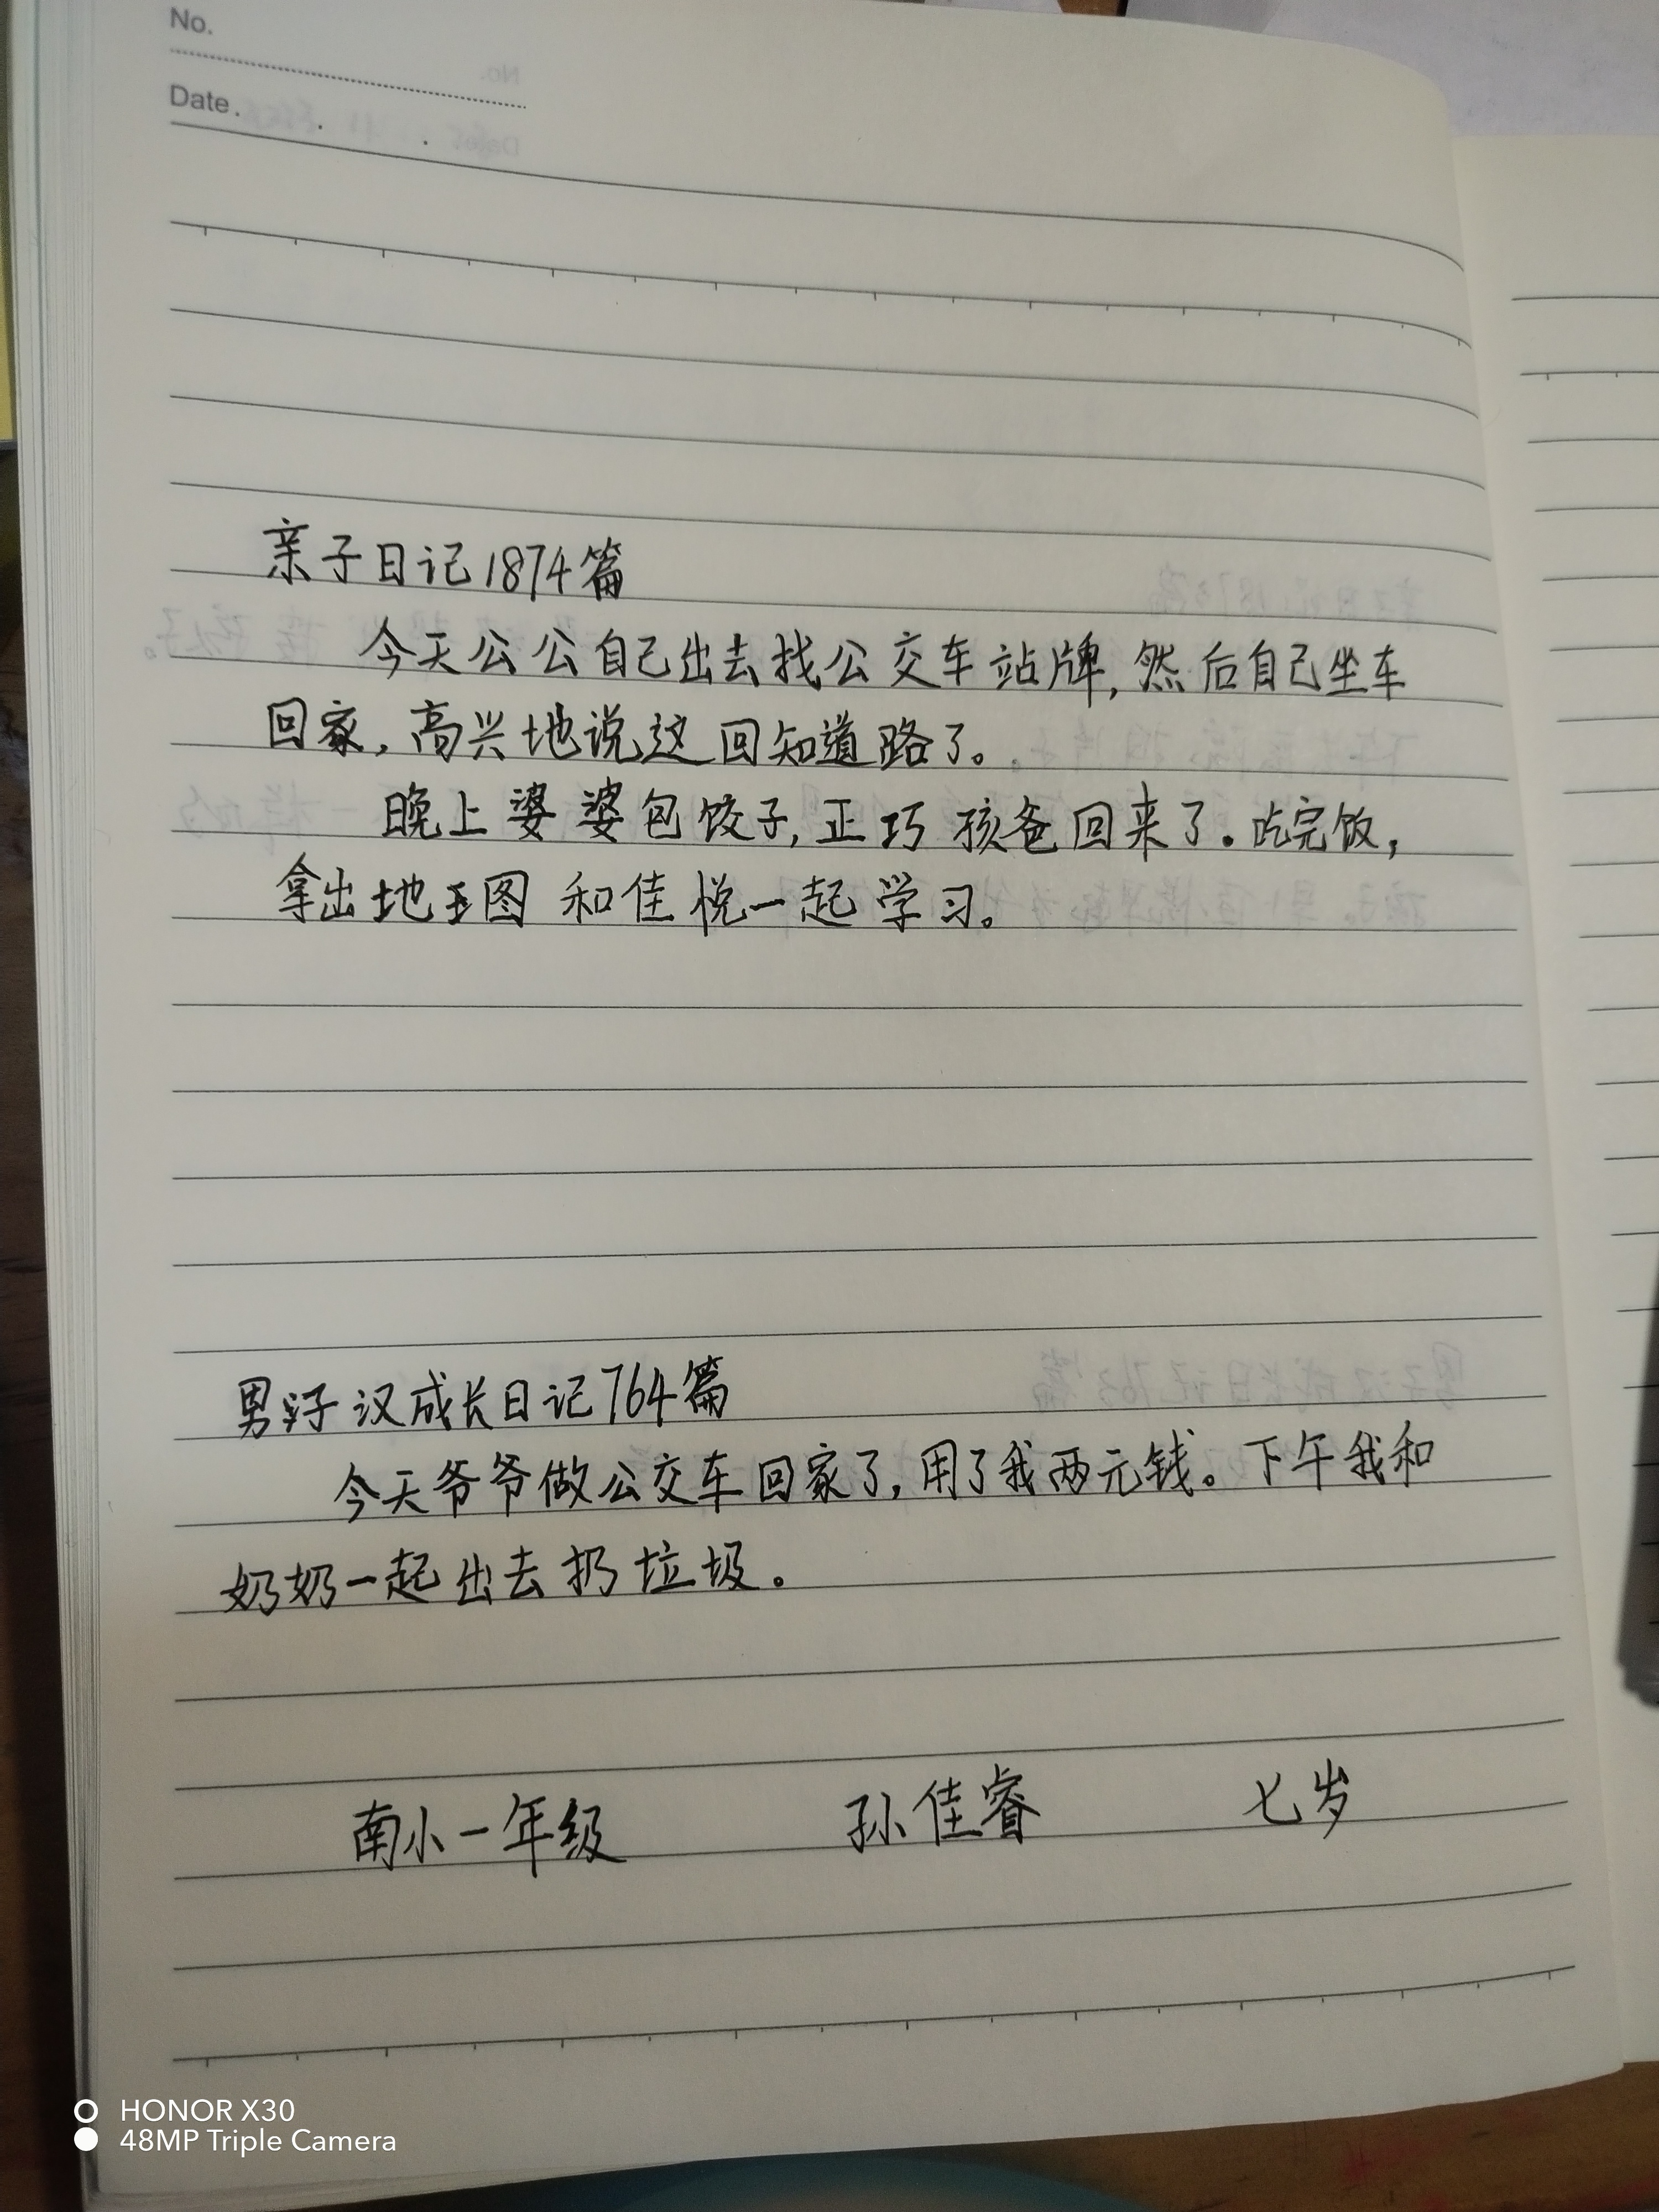 No.
Date.
亲子日记1874篇
今天公公自己出去找公交车站牌,然后自己坐车
回家,高兴地说这回知道路了。
晚上婆婆包饺子,正巧孩爸回来了.吃完饭,
拿出地图和佳悦一起学习。
男子汉成长日记764篇
今天爷爷做公交车回家了,用了我两元钱。下午我和
奶奶一起出去扔垃圾。
南小一年级 孙佳睿 七岁
HONOR X30
48MP Triple Camera